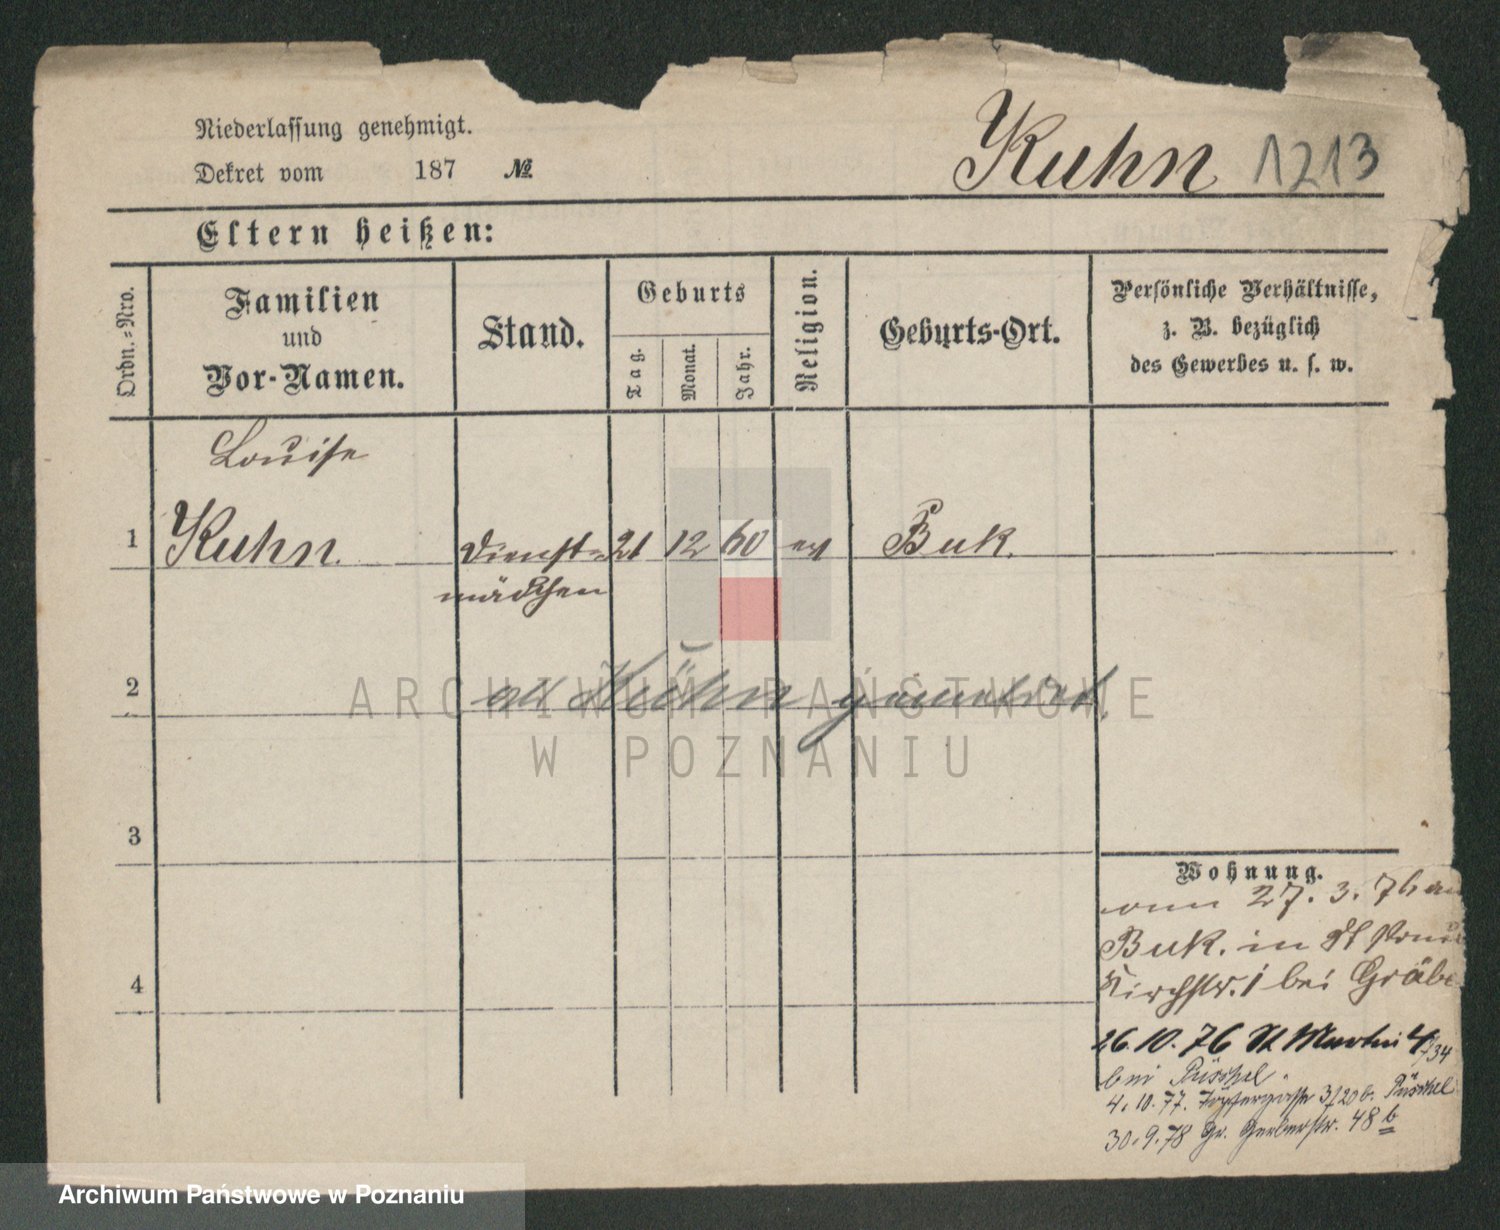 Niederlassung genehmigt.
Dekret vom 187 №
Kuhn 1213
Eltern heißen:
Ordn.-Nro.
Familien
und
Vor-Namen.
Stand.
Geburts
Tag.
Monat.
Jahr.
Religion.
Geburts-Ort.
Persönliche Verhältnisse,
z. B. bezüglich
des Gewerbes u. s. w.
Louise
1 Kuhn. Dienst= 21 12 60 ev Buk.
mädchen
2 als Kühn gemeldet.
3
4
Wohnung.
vom 27. 3. 76 au
Buk. in St
Kirchstr. 1 bei Gräbe
26. 10. 76 St Martin 4/34
bei Püschel.
4. 10. 77. Töpfergasse 3/20 b. Püschel
30. 9. 78 Gr. Gerberstr. 48 b
ARCHIWUM PAŃSTWOWE
W POZNANIU
Archiwum Państwowe w Poznaniu